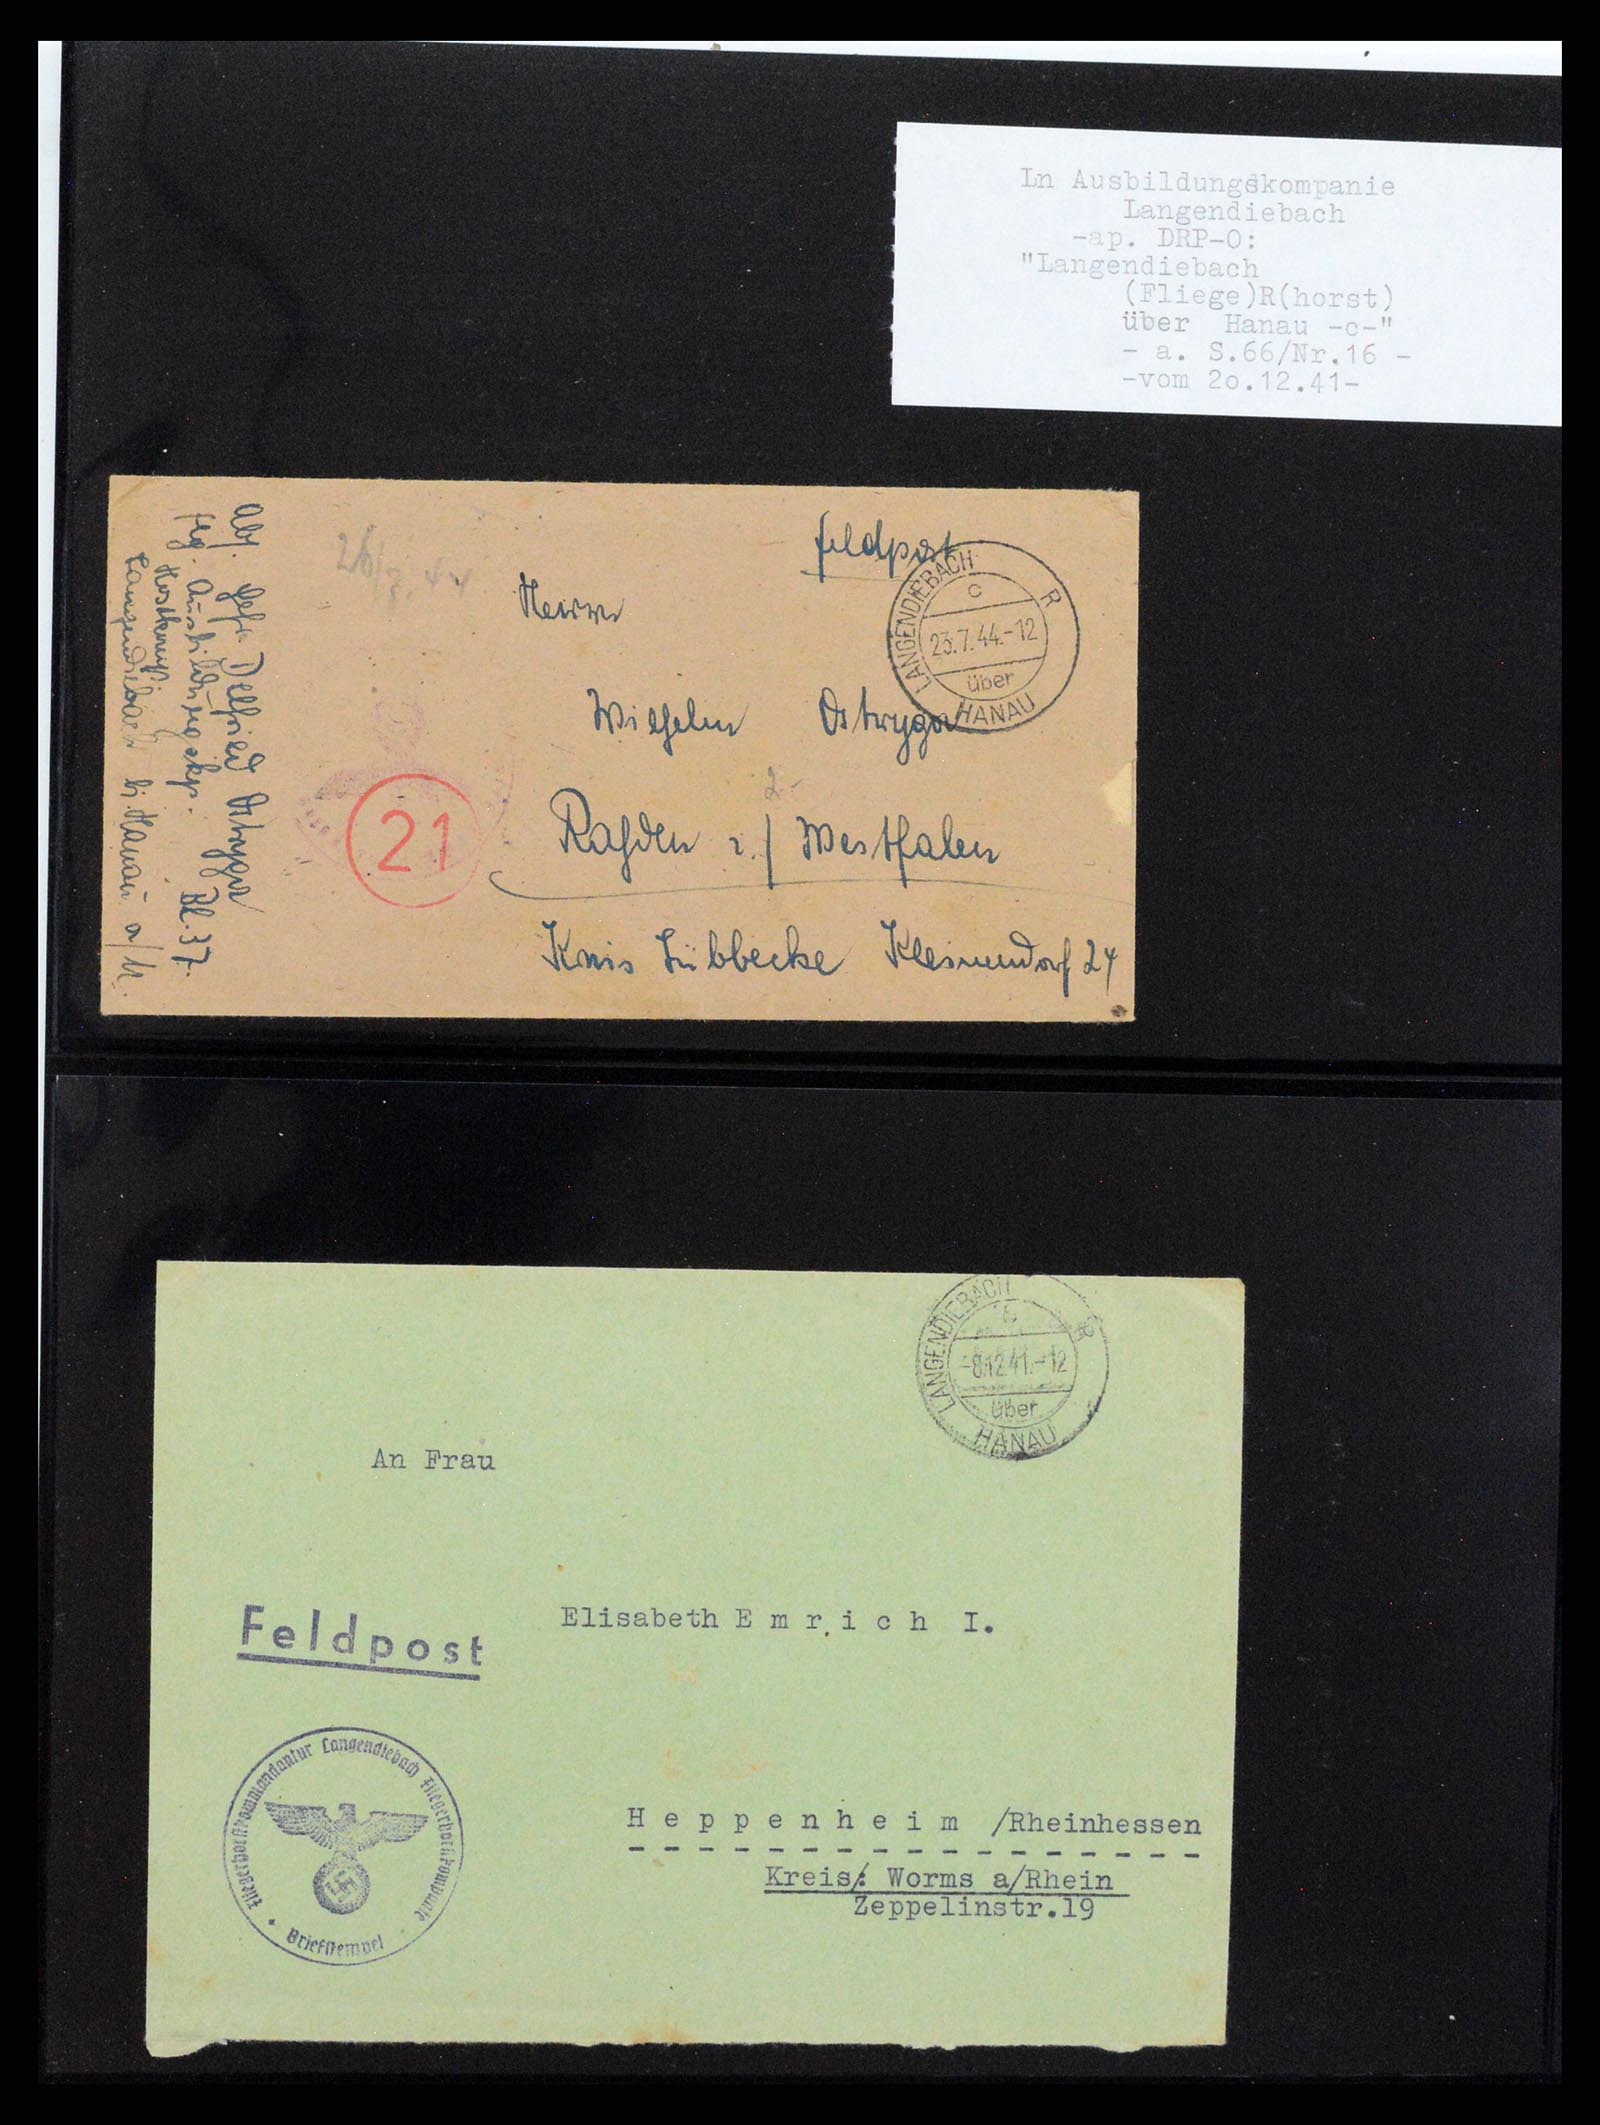 Ln Ausbildungskompanie
Langendiebach
-ap. DRP-O:
"Langendiebach
(Fliege)R(horst)
über Hanau -c-"
- a. S.66/Nr.16 -
-vom 2o.12.41-
Feldpost
LANGENDIEBACH R
c
23.7.44.-12
über
HANAU
26/7.44
Herrn
Wilhelm Ostryga
2-
Rahden i./Westfalen
Kreis Lübbecke Kleinendorf 24
21
Abs. Gefr. Delfried Ostryga
Flg. Ausbildungskp. Bl. 37.
Langendiebach b. Hanau a/M.
LANGENDIEBACH R
c
-8.12.41.-12
über
HANAU
An Frau
Feldpost
Elisabeth E m r i c h I.
H e p p e n h e i m /Rheinhessen
Kreis/: Worms a/Rhein
Zeppelinstr.19
Fliegerhorstkommandantur Langendiebach Fliegerhorstkompanie
Briefstempel